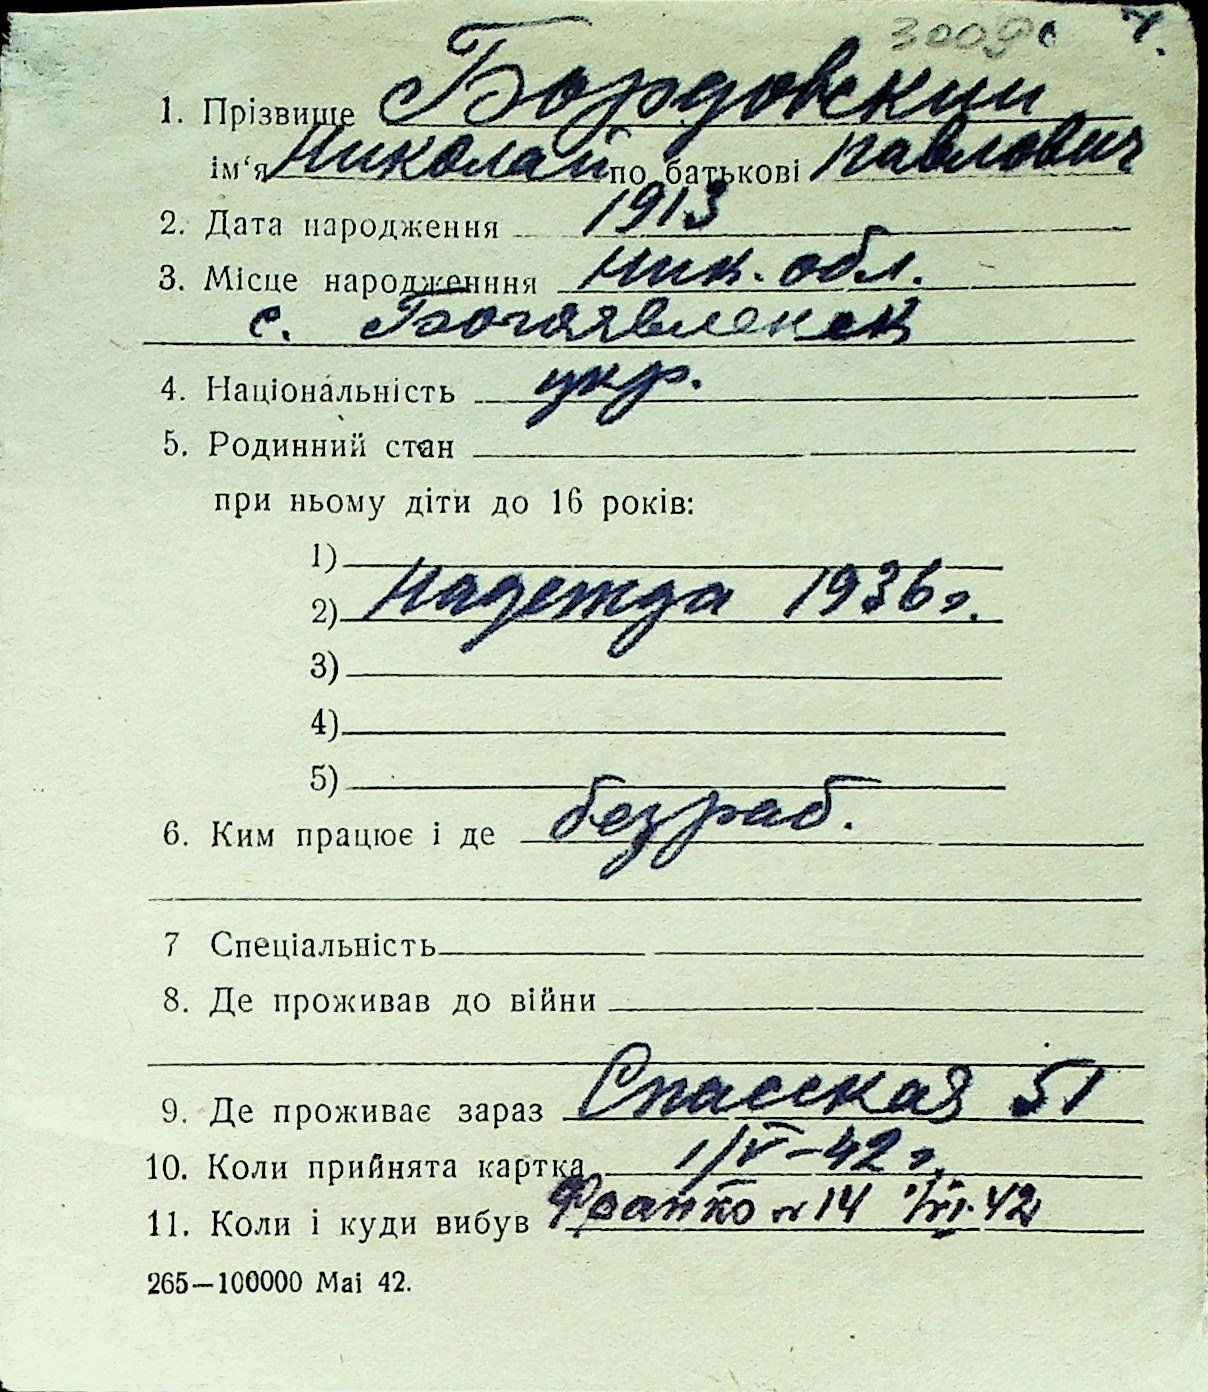 1. Прізвище Бордовский
ім'я Николай по батькові Павлович
2. Дата народження 1913
3. Місце народженння Ник. обл.
с. Богоявленск
4. Національність укр.
5. Родинний стан
при ньому діти до 16 років:
1)
2) Надежда 1936 г.
3)
4)
5)
6. Ким працює і де безраб.
7 Спеціальність
8. Де проживав до війни
9. Де проживає зараз Спасская 51
10. Коли прийнята картка 1/V-42 г.
11. Коли і куди вибув Франко № 14 42
265—100000 Mai 42.